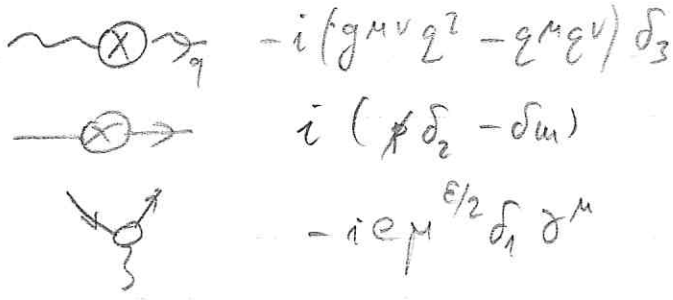 q -i(g^{μν}q² - q^μq^ν)δ₃
i(p̸δ₂ - δm)
-ieμ^{ε/2}δ₁γ^μ